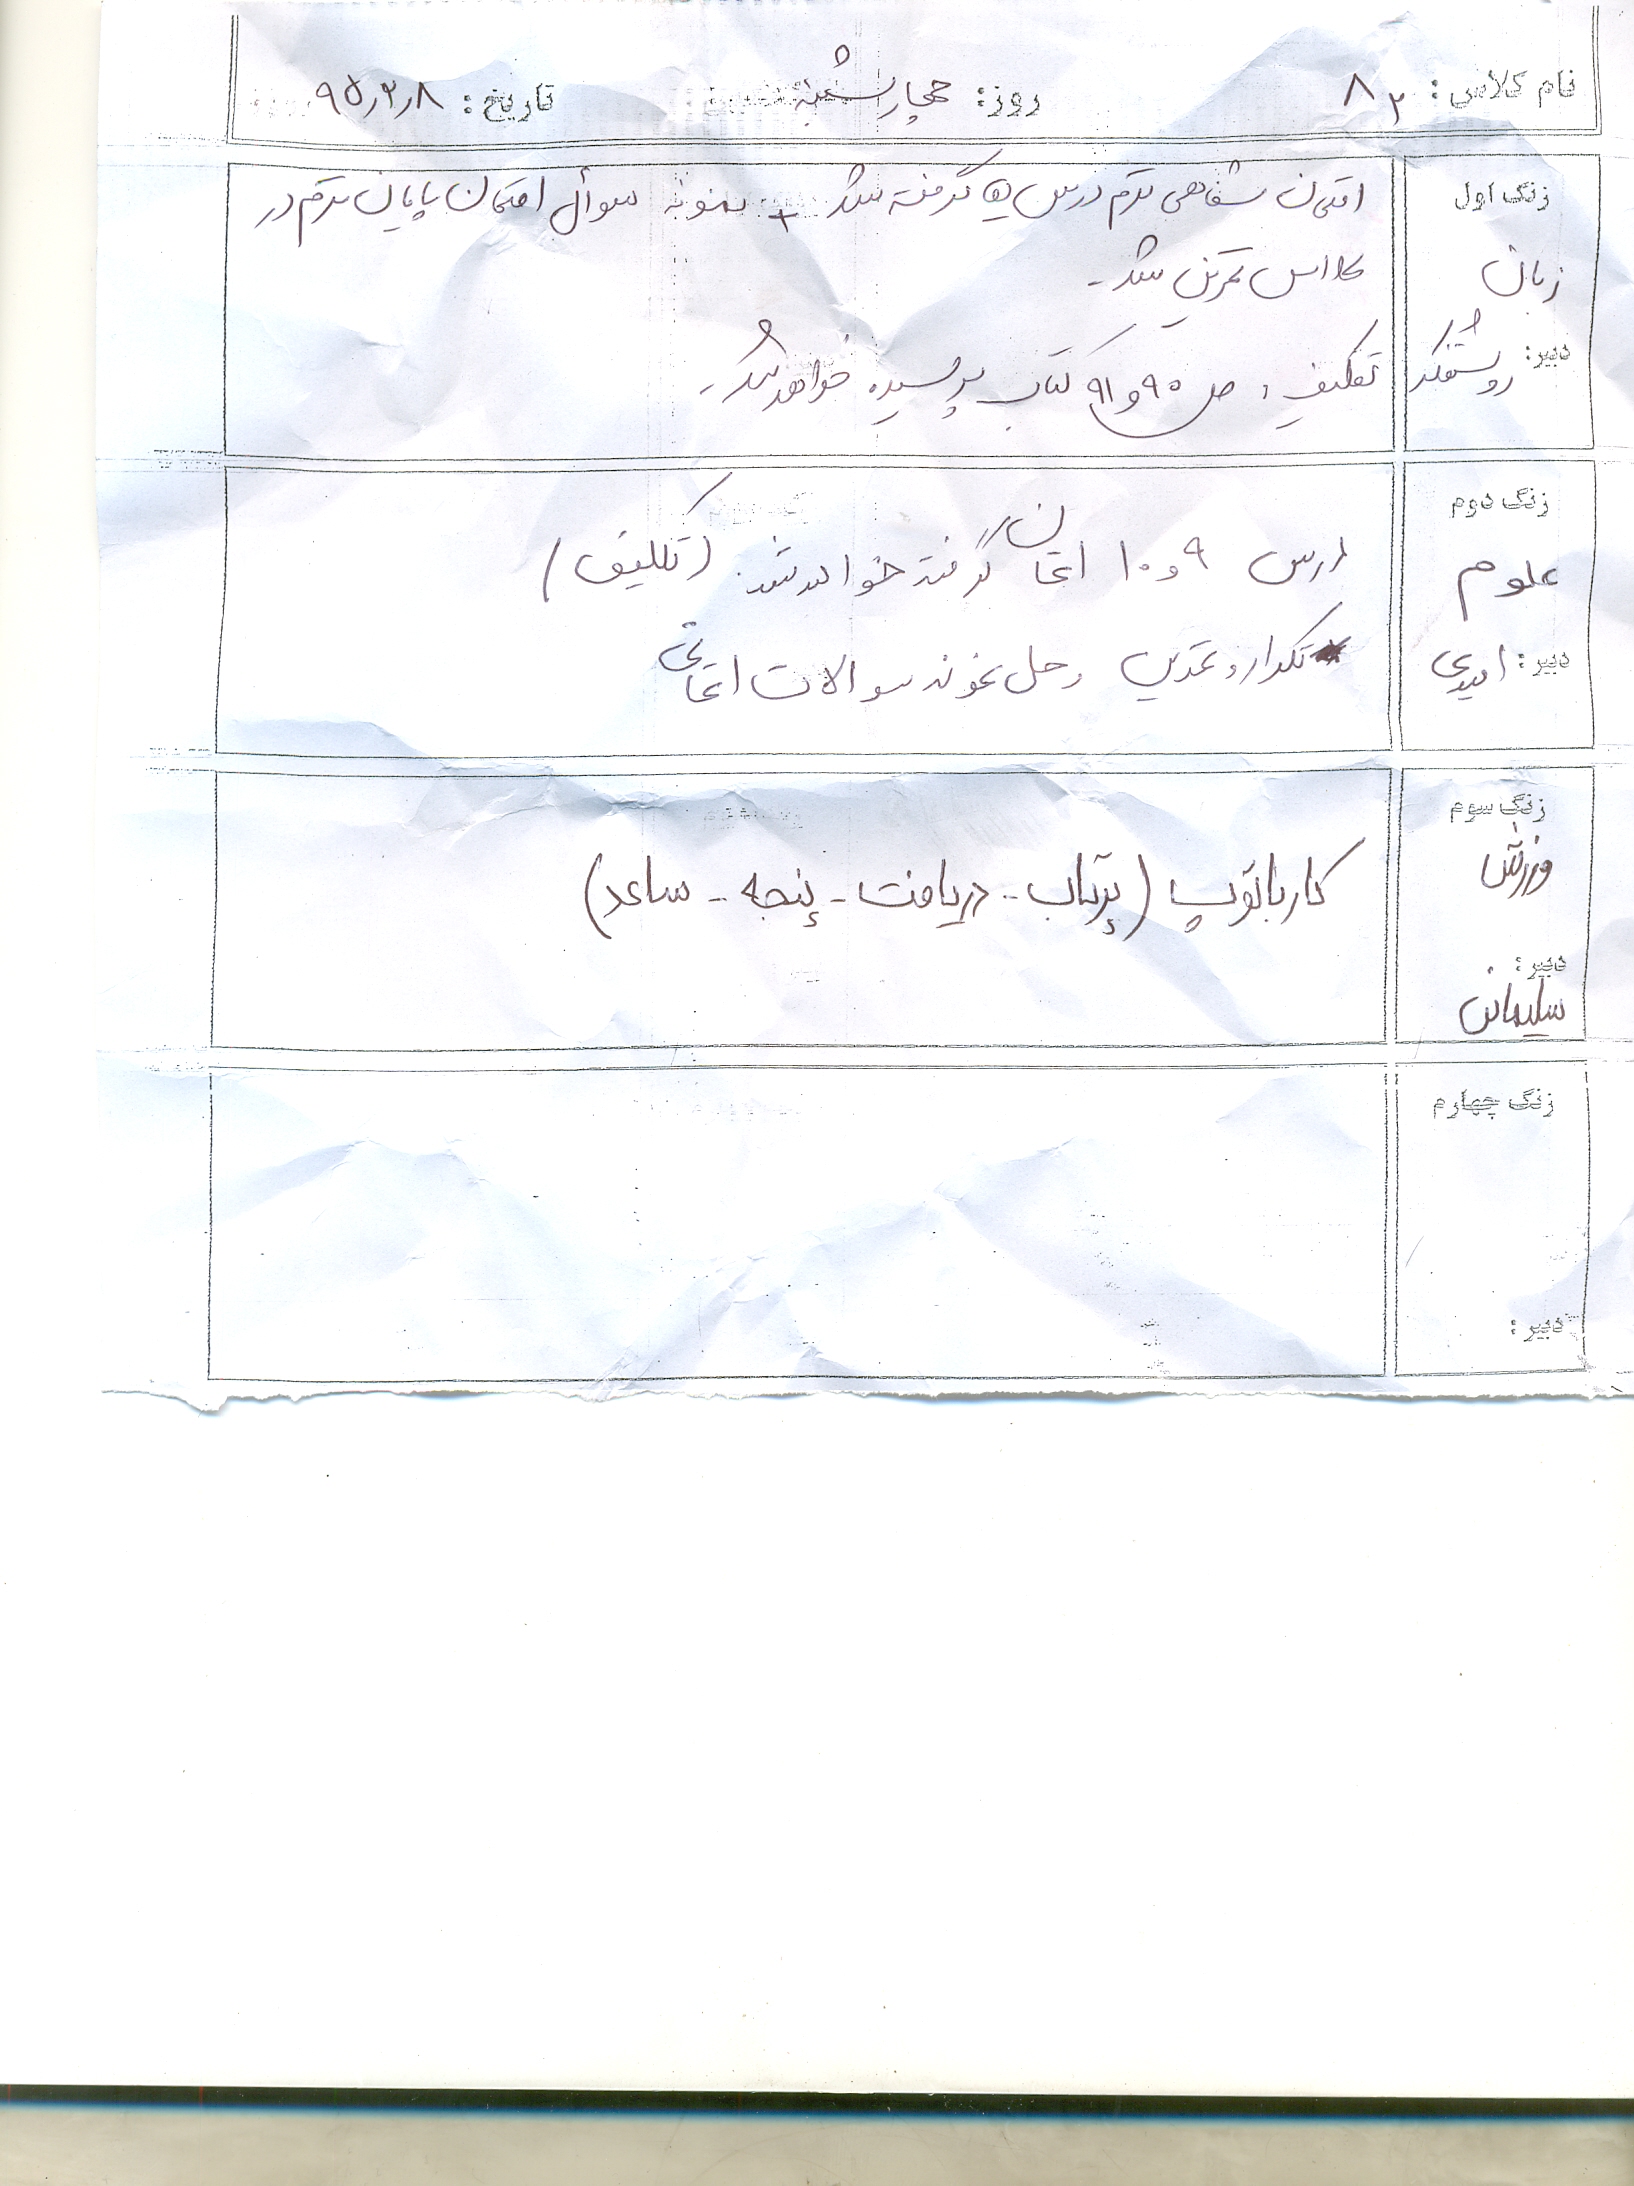 نام کلاس: ۸۲ روز: چهارشنبه تاریخ: ۹۵٫۲٫۸
زنگ اول
زبان
دبیر: روشنفکر
امتحان شفاهی ترم درس ۵ گرفته شد + نمونه سوال امتحان پایان ترم در
کلاس تمرین شد.
تکلیف: ص ۹۰ و ۹۱ کتاب پرسیده خواهد شد.
زنگ دوم
علوم
دبیر: امیدی
درس ۹ و ۱۰ امتحان گرفته خواهد شد. (تکلیف)
تکرار و تمرین و حل نمونه سوالات امتحانی
زنگ سوم
ورزش
دبیر:
سلیمانی
کار با توپ (پرتاب - دریافت - پنجه - ساعد)
زنگ چهارم
دبیر: